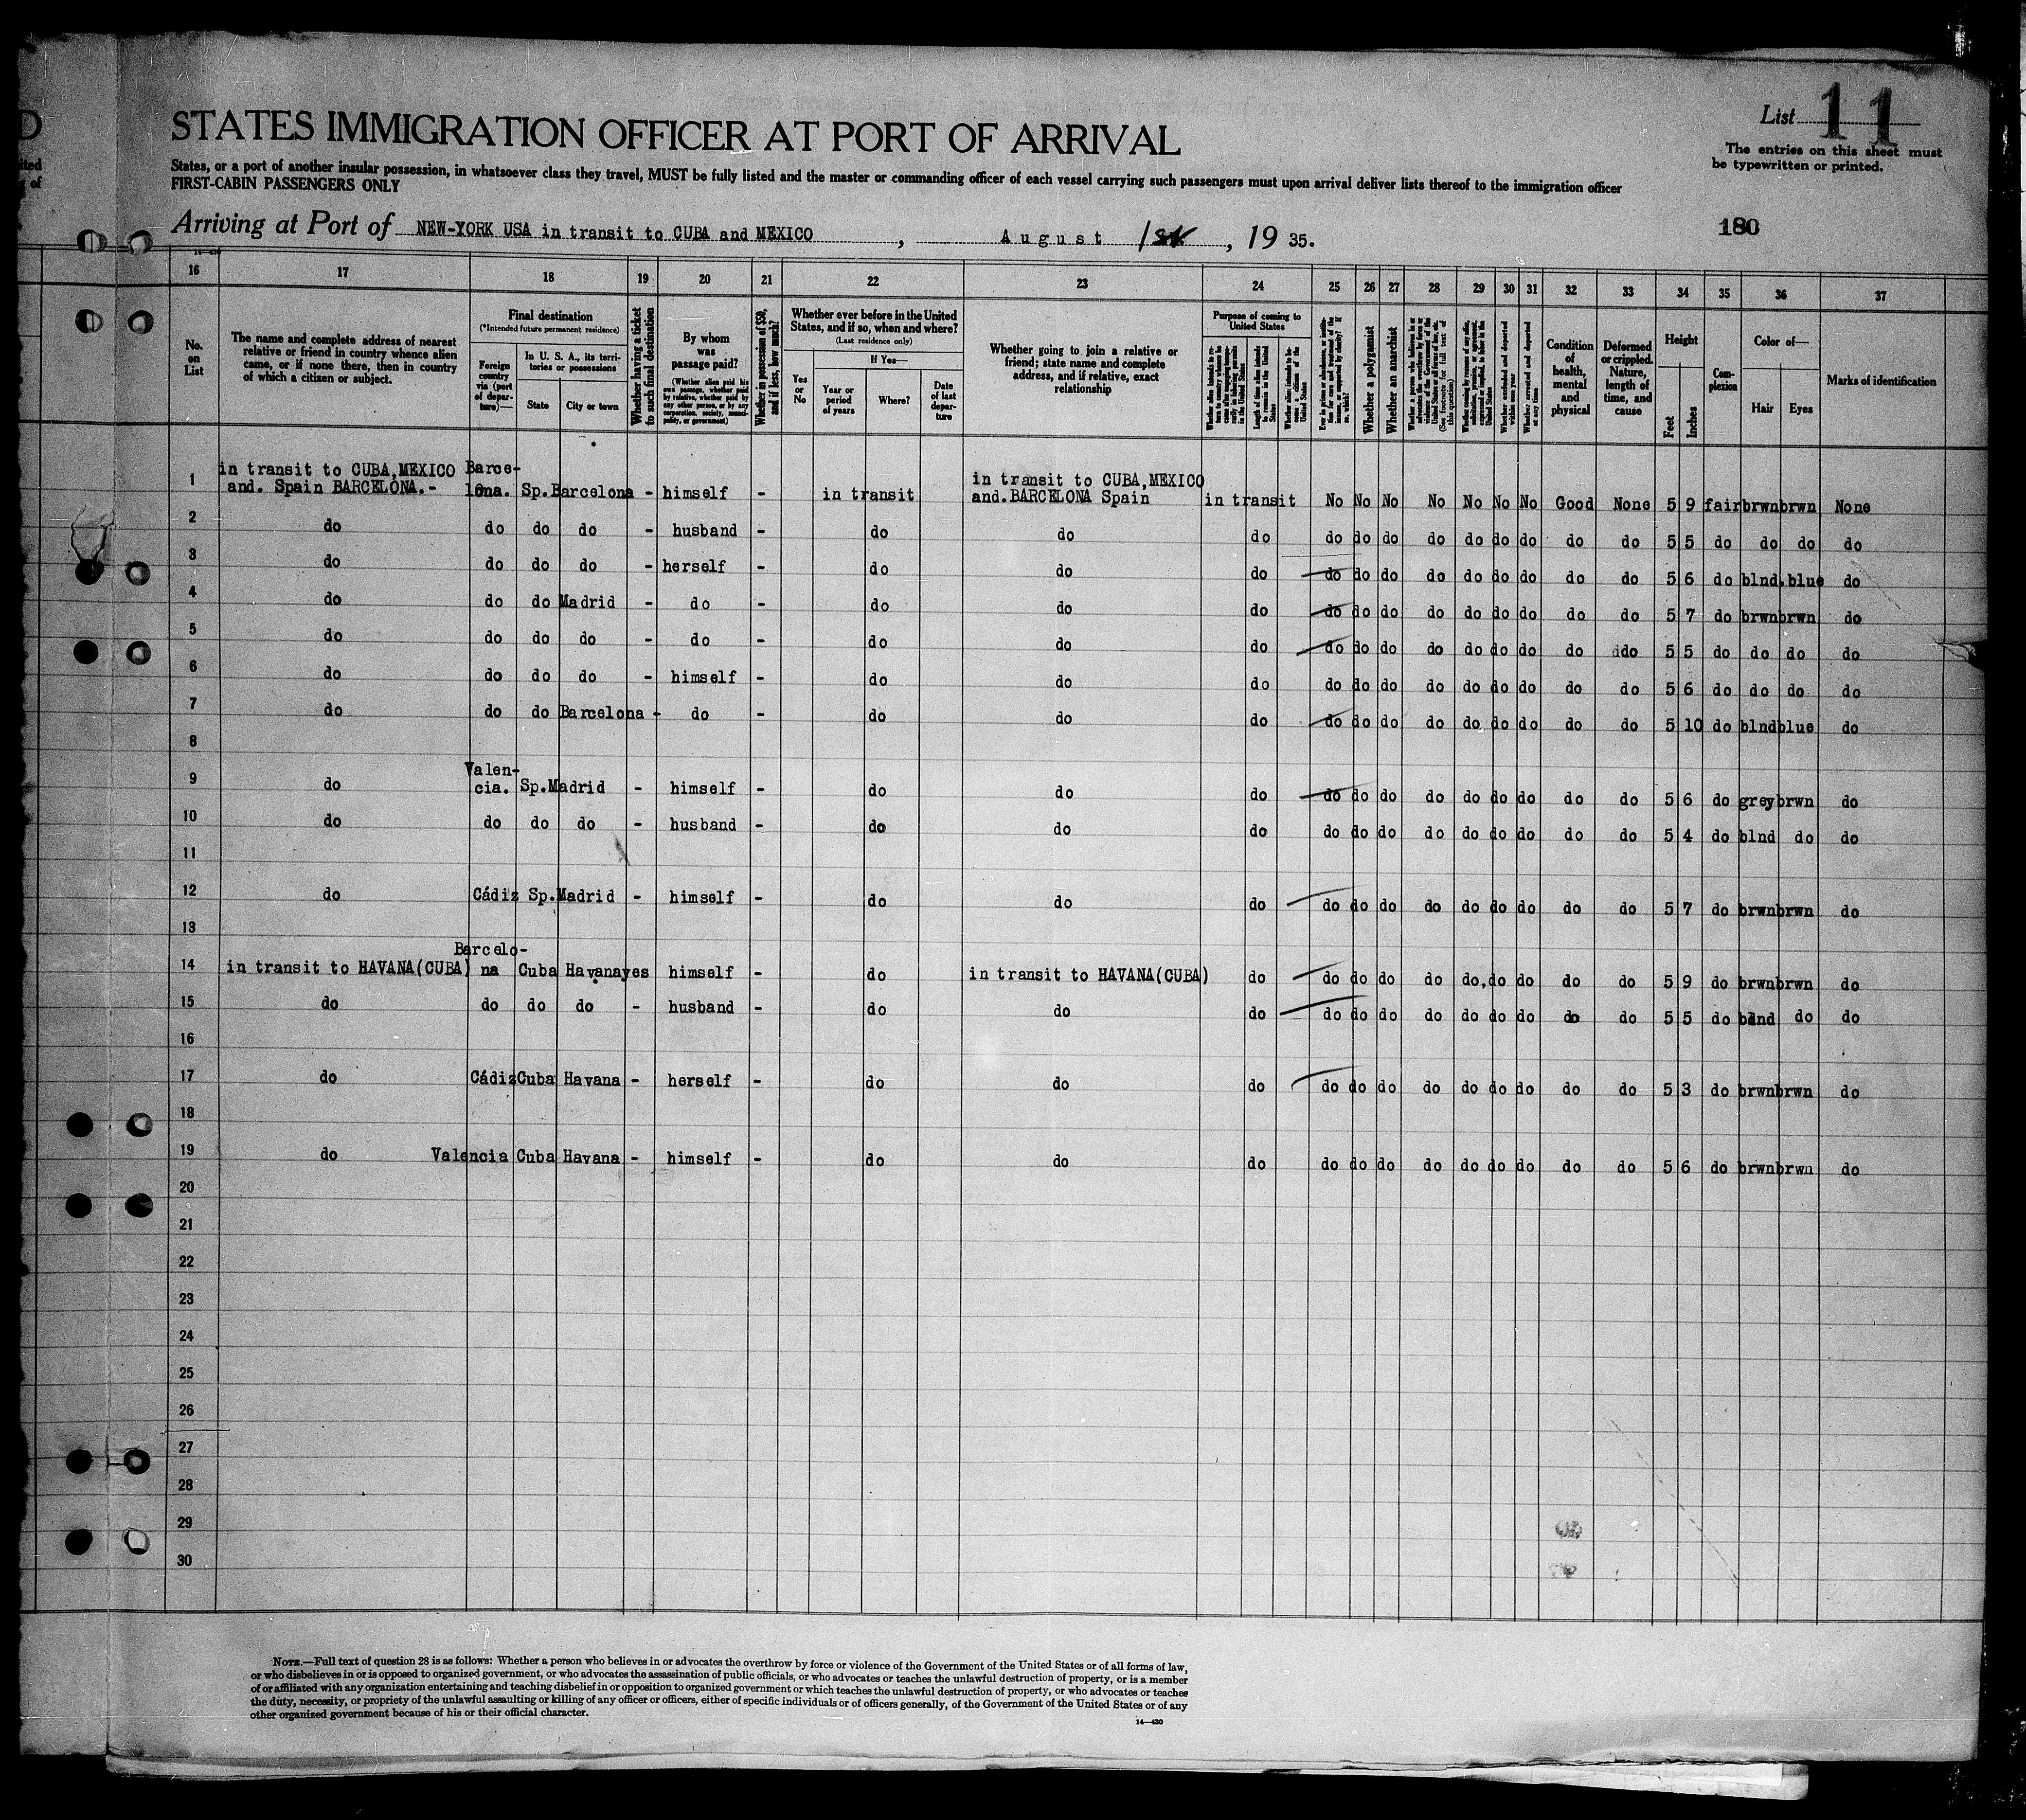 D
STATES IMMIGRATION OFFICER AT PORT OF ARRIVAL
List 11
The entries on this sheet must
be typewritten or printed.
ited
of
States, or a port of another insular possession, in whatsoever class they travel, MUST be fully listed and the master or commanding officer of each vessel carrying such passengers must upon arrival deliver lists thereof to the immigration officer
FIRST-CABIN PASSENGERS ONLY
Arriving at Port of NEW-YORK USA in transit to CUBA and MEXICO, August 1st, 19 35.
180
16 17 18 19 20 21 22 23 24 25 26 27 28 29 30 31 32 33 34 35 36 37
No. on List
The name and complete address of nearest relative or friend in country whence alien came, or if none there, then in country of which a citizen or subject.
Final destination
(*Intended future permanent residence)
Foreign country via (port of departure)—
In U. S. A., its territories or possessions
State
City or town
Whether having a ticket to such final destination
By whom was passage paid?
(Whether alien paid his own passage, whether paid by relative, whether paid by any other person, or by any corporation, society, municipality, or government)
Whether in possession of $50, and if less, how much?
Whether ever before in the United States, and if so, when and where?
(Last residence only)
Yes or No
If Yes—
Year or period of years
Where?
Date of last departure
Whether going to join a relative or friend; state name and complete address, and if relative, exact relationship
Purpose of coming to United States
Length of time alien intends to remain in the United States
Whether alien intends to become a citizen of the United States
Whether a polygamist
Whether an anarchist
(See footnote for full text of this question)
Whether excluded and deported within one year
Whether arrested and deported at any time
Condition of health, mental and physical
Deformed or crippled. Nature, length of time, and cause
Height
Feet
Inches
Complexion
Color of—
Hair
Eyes
Marks of identification
1 in transit to CUBA, MEXICO and. Spain BARCELONA.- Barcelona. Sp. Barcelona - himself - in transit in transit to CUBA, MEXICO and. BARCELONA Spain in transit No No No No No No No Good None 5 9 fair brwn brwn None
2 do do do do - husband - do do do do do do do do do do do do 5 5 do do do do
3 do do do do - herself - do do do do do do do do do do do do 5 6 do blnd. blue do
4 do do do Madrid - do - do do do do do do do do do do do do 5 7 do brwn brwn do
5 do do do do - do - do do do do do do do do do do do ddo 5 5 do do do do
6 do do do do - himself - do do do do do do do do do do do do 5 6 do do do do
7 do do do Barcelona - do - do do do do do do do do do do do do 5 10 do blnd blue do
8
9 do Valencia. Sp. Madrid - himself - do do do do do do do do do do do do 5 6 do grey brwn do
10 do do do do - husband - do do do do do do do do do do do do 5 4 do blnd do do
11
12 do Cádiz Sp. Madrid - himself - do do do do do do do do do do do do 5 7 do brwn brwn do
13
14 in transit to HAVANA (CUBA) Barcelona Cuba Havana yes himself - do in transit to HAVANA (CUBA) do do do do do do do do do do 5 9 do brwn brwn do
15 do do do do - husband - do do do do do do do do do do do do 5 5 do blnd do do
16
17 do Cádiz Cuba Havana - herself - do do do do do do do do do do do do 5 3 do brwn brwn do
18
19 do Valencia Cuba Havana - himself - do do do do do do do do do do do do 5 6 do brwn brwn do
20
21
22
23
24
25
26
27
28
29
30
NOTE.—Full text of question 28 is as follows: Whether a person who believes in or advocates the overthrow by force or violence of the Government of the United States or of all forms of law,
or who disbelieves in or is opposed to organized government, or who advocates the assassination of public officials, or who advocates or teaches the unlawful destruction of property, or is a member
of or affiliated with any organization entertaining and teaching disbelief in or opposition to organized government or which teaches the unlawful destruction of property, or who advocates or teaches
the duty, necessity, or propriety of the unlawful assaulting or killing of any officer or officers, either of specific individuals or of officers generally, of the Government of the United States or of any
other organized government because of his or their official character.
14—430